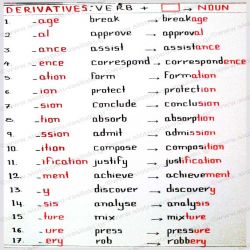 DERIVATIVES: VERB + → NOUN
1. _age break → breakage
2. _al approve → approval
3. _ance assist → assistance
4. _ence correspond → correspondence
5. _ation form → formation
6. _ion protect → protection
7. _sion conclude → conclusion
8. _tion absorb → absorption
9. _ssion admit → admission
10. _ition compose → composition
11. _ification justify → justification
12. _ment achieve → achievement
13. _y discover → discovery
14. _sis analyse → analysis
15. _ture mix → mixture
16. _ure press → pressure
17. _ery rob → robbery